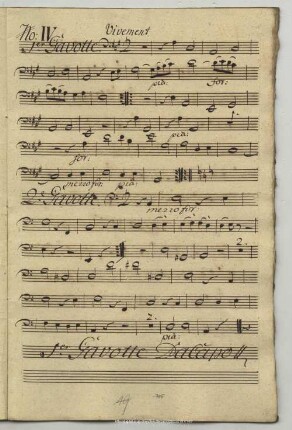 No: IV. Vivement
1re Gavotte
pia: for:
pia:
for:
mezzo for: pia:
2e Gavotte
mezzo for
2.
2.
pia:
1re Gavotte Da Capo
49